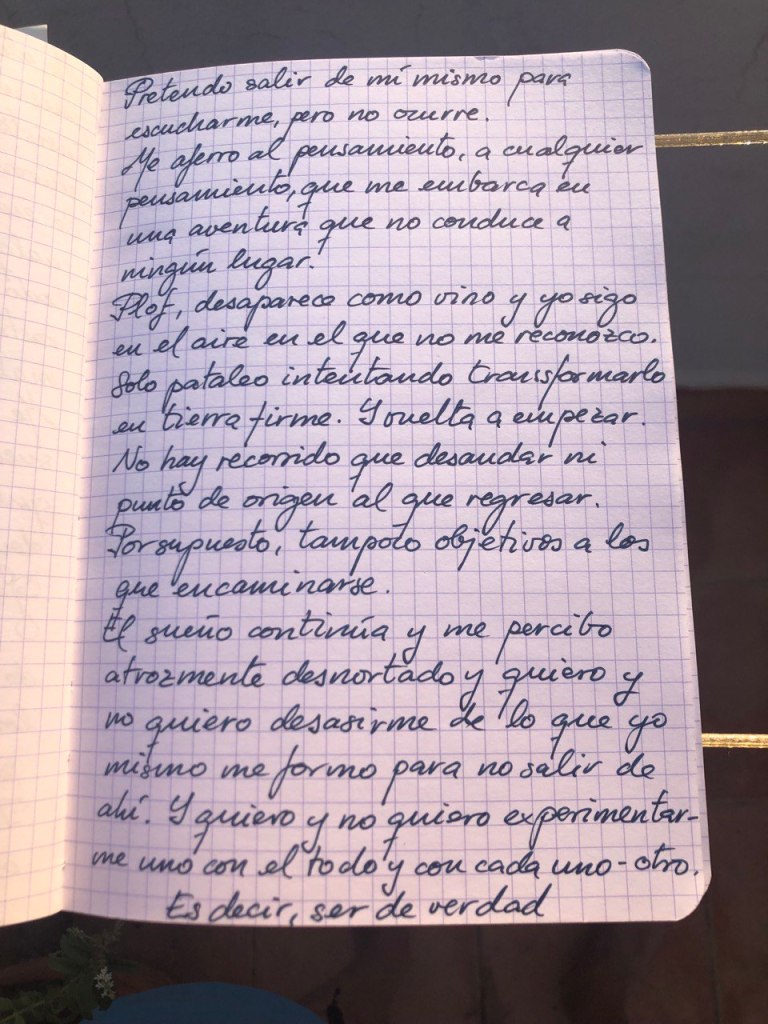 Pretendo salir de mí mismo para
escucharme, pero no ocurre.
Me aferro al pensamiento, a cualquier
pensamiento, que me embarca en
una aventura que no conduce a
ningún lugar.
Plof, desaparece como vino y yo sigo
en el aire en el que no me reconozco.
Solo pataleo intentando transformarlo
en tierra firme. Y vuelta a empezar.
No hay recorrido que desandar ni
punto de origen al que regresar.
Por supuesto, tampoco objetivos a los
que encaminarse.
El sueño continúa y me percibo
atrozmente desnortado y quiero y
no quiero desasirme de lo que yo
mismo me formo para no salir de
ahí. Y quiero y no quiero experimentar-
me uno con el todo y con cada uno-otro.
Es decir, ser de verdad